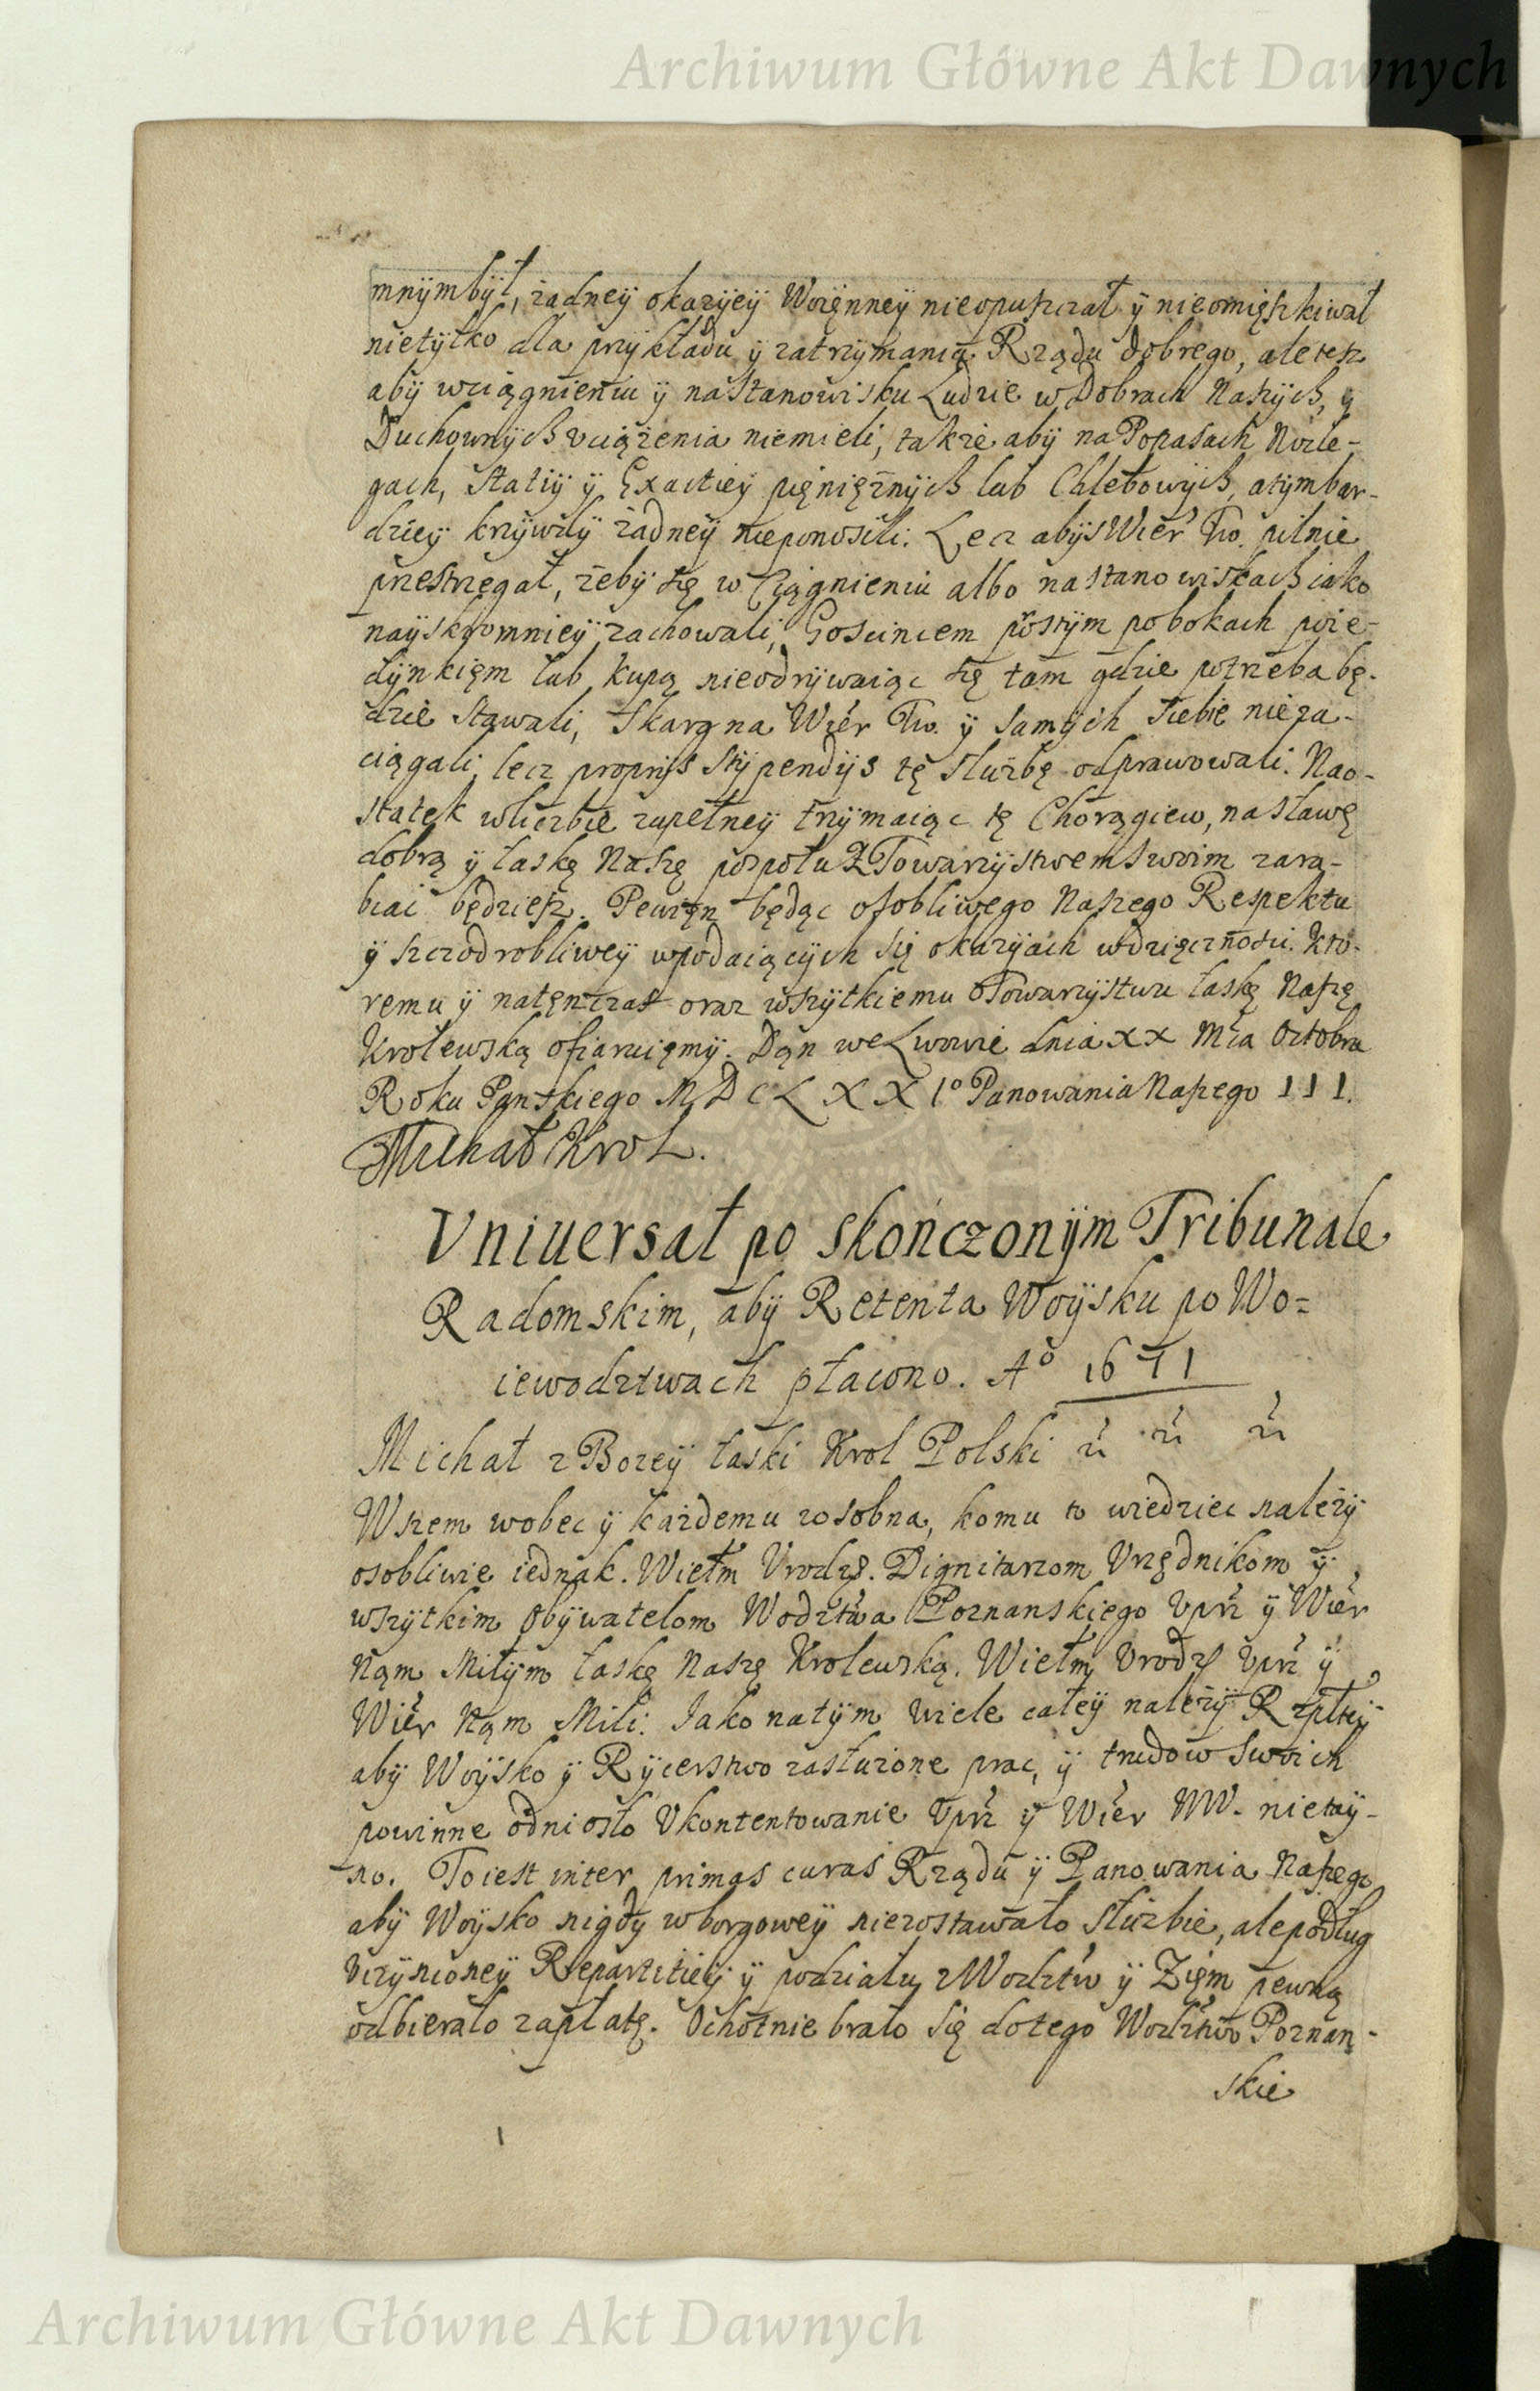 Archiwum Główne Akt Dawnych
mnÿmbÿł, żadneÿ okazÿeÿ Woięnneÿ nieopuszczał ÿ nieomięszkiwał
nietÿlko dla przÿkładu ÿ zatrzÿmania Rządu dobrego, aletesz
abÿ wciągnieniu ÿ naStanowisku Ludzie w Dobrach Naszÿch, ÿ
Duchownÿch vciążenia niemieli, także abÿ na Popasach Nocle-
gach, Statiÿ ÿ Exactieÿ pięniężnÿch lub Chlebowÿch, atÿmbar-
dzieÿ krzÿwdÿ żadneÿ nieponosili. Lecz abÿs Wier Tw. pilnie
przestrzegał, żebÿ się w Ciągnieniu albo nastanowiskach iako
naÿskromnieÿ zachowali, Goscincem prostÿm pobokach poie-
dÿnkięm lub kupą nieodrÿwaiąc się tam gdzie potrzeba bę-
dzie stawali, skarg na Wier Tw. ÿ samÿch siebie nieza-
ciągali, lecz proprijs stÿpendÿs tę służbę odprawowali. Nao-
statek wliczbie zupełneÿ trzÿmaiąc tę Chorągiew, nasławę
dobrą ÿ łaskę Naszę pospołu z Towarzÿstwem swoim zara-
biać będziesz. Pewięn będąc osobliwego Naszego Respektu
ÿ szczodrobliweÿ wpodaiącÿch się okazÿach wdzięcznosci. Kto-
remu ÿ natęnczas oraz wszÿtkiemu Towarzÿstwu łaskę Naszę
Krolewską ofiaruięmÿ. Dąn weLwowie dnia XX Mca Octobra
Roku Pąnskiego MDCLXXI° Panowania Naszego III.
Michał Krol.
Vniuersał po skończonÿm Tribunale
Radomskim, abÿ Retenta Woÿsku po Wo=
iewodztwach płacono. A° 1671
Michał z Bożeÿ łaski Krol Polski
Wszem wobec ÿ każdemu zosobna, komu to wiedziec należÿ
osobliwie iednak. Wielm Vrodz. Dignitarzom Vrzędnikom ÿ
wszÿtkim Obÿwatelom Wodztwa Poznanskiego Vprz ÿ Wier
Nąm Miłÿm łaskę Naszę Krolewską. Wielm Vrodz Vprz ÿ
Wier Nąm Mili. Jako natÿm wiele całeÿ należÿ Rzplteÿ
abÿ Woÿsko ÿ Rÿcerstwo zasłużone prac, ÿ trudow swoich
powinne odniosło Vkontentowanie Vprz ÿ Wier WW. nietaÿ-
no. Toiest inter primas curas Rządu ÿ Panowania Naszego
abÿ Woÿsko nigdÿ wborgoweÿ niezostawało służbie, alepodług
Vczÿnioneÿ Repartitieÿ ÿ podziału z Wodztw ÿ Zięm pewną
odbierało zapłatę. Ochotnie brało się dotego Wodztwo Poznan-
skie
Archiwum Główne Akt Dawnych